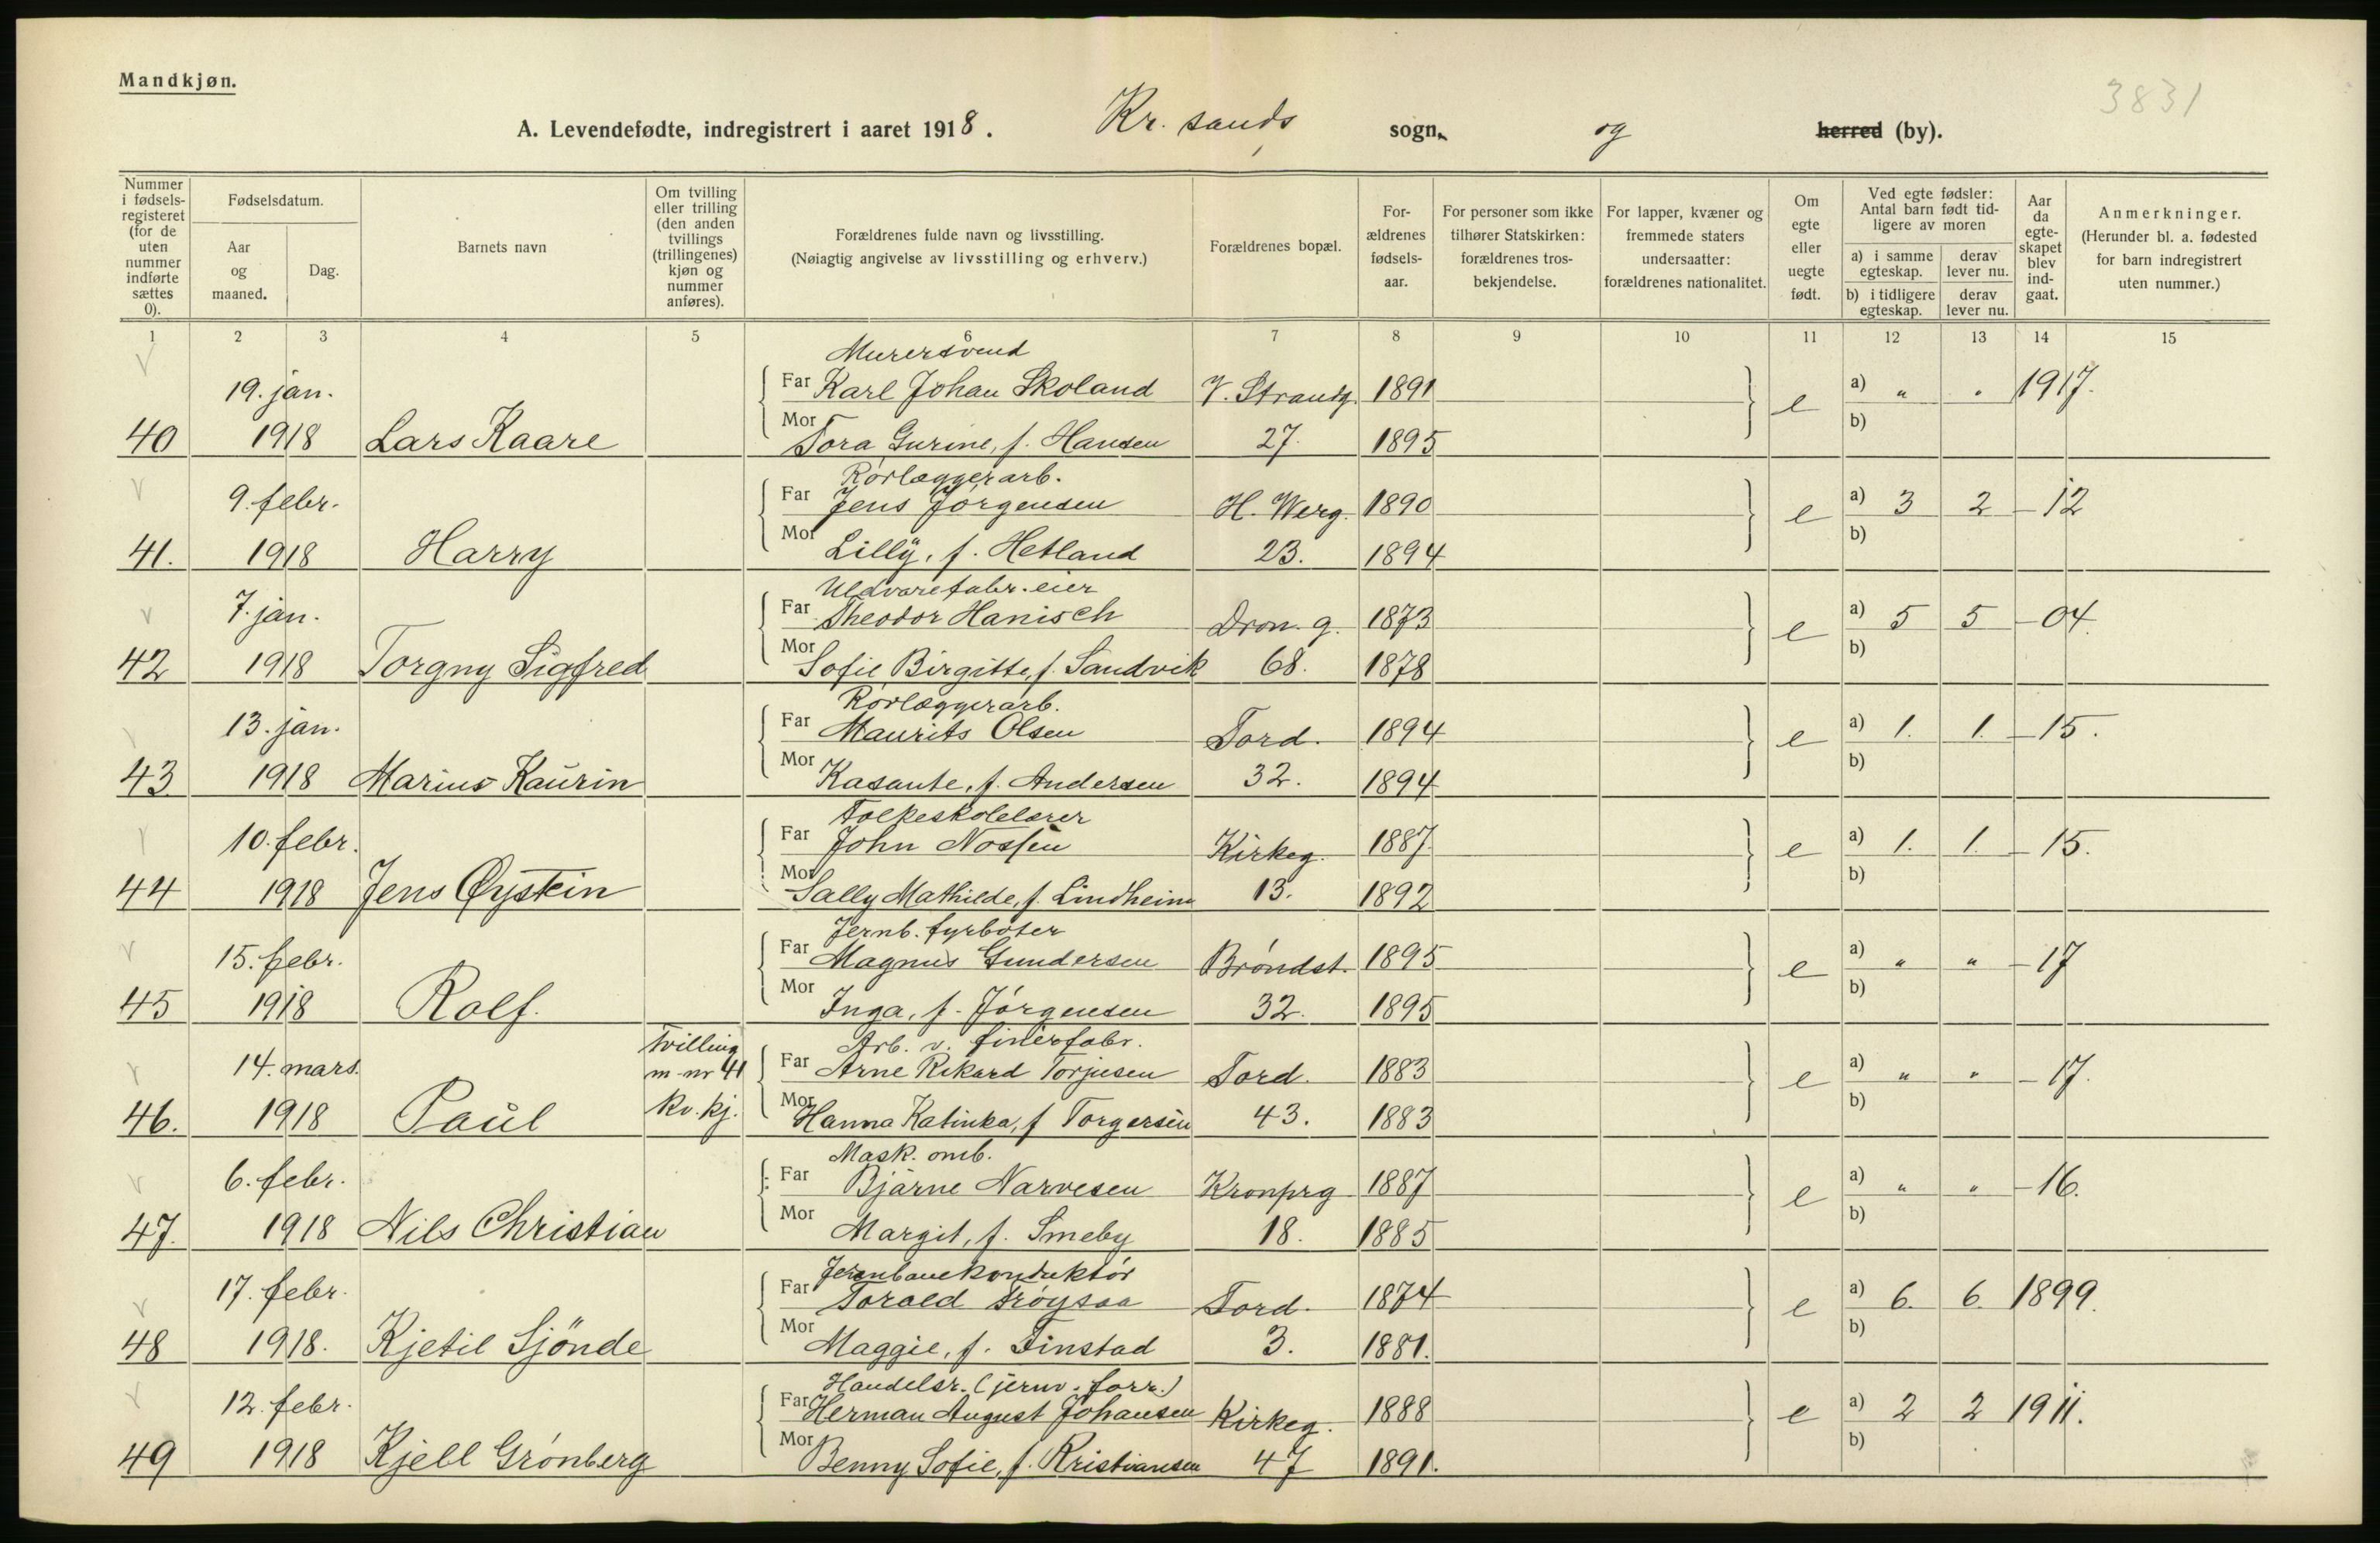 Mandkjøn.
3831
A. Levendefødte, indregistrert i aaret 1918. Kr. sands sogn, og herred (by).
Nummer i fødselsregisteret (for de uten nummer indførte sættes 0).
Fødselsdatum.
Aar og maaned.
Dag.
Barnets navn
Om tvilling eller trilling (den anden tvillings (trillingenes) kjøn og nummer anføres).
Forældrenes fulde navn og livsstilling. (Nøiagtig angivelse av livsstilling og erhverv.)
Forældrenes bopæl.
Forældrenes fødselsaar.
For personer som ikke tilhører Statskirken: forældrenes trosbekjendelse.
For lapper, kvæner og fremmede staters undersaatter: forældrenes nationalitet.
Om egte eller uegte født.
Ved egte fødsler: Antal barn født tidligere av moren
a) i samme egteskap.
derav lever nu.
b) i tidligere egteskap.
derav lever nu.
Aar da egteskapet blev indgaat.
Anmerkninger. (Herunder bl. a. fødested for barn indregistrert uten nummer.)
1 2 3 4 5 6 7 8 9 10 11 12 13 14 15
Murersvend
19. jan. Far Karl Johan Skoland V. Strandg. 1891 e a) " " 1917.
40 1918 Lars Kaare Mor Tora Gurine, f. Hansen 27. 1895 b)
Rørlæggerarb.
9. febr. Far Jens Jørgensen H. Werg. 1890 e a) 3 2 - 12
41. 1918 Harry Mor Lilly, f. Hetland 23. 1894 b)
Uldvarefabr. eier
7. jan. Far Theodor Hanisch Dron. g. 1873 e a) 5 5 - 04.
42 1918 Torgny Sigfred Mor Sofie Birgitte, f. Sandvik 68. 1878 b)
Rørlæggerarb.
13. jan. Far Maurits Olsen Tord. 1894 e a) 1. 1. - 15.
43 1918 Marius Kaurin Mor Kasante, f. Andersen 32. 1894 b)
Folkeskolelærer
10. febr. Far John Nossen Kirkeg. 1887. e a) 1. 1. - 15.
44 1918 Jens Øystein Mor Sally Mathilde, f. Lindheim 13. 1892 b)
Jernb. fyrbøter
15. febr. Far Magnus Gundersen Brøndst. 1895 e a) " " - 17
45 1918 Rolf. Mor Inga, f. Jørgensen 32. 1895 b)
Tvilling Arb. v. finérfabr.
14. mars. m. nr 41 Far Arne Rikard Torjusen Tord. 1883 e a) " " - 17.
46. 1918 Paul kv. kj. Mor Hanna Katinka, f Torgersen 43. 1883 b)
Mask. omb.
6. febr. Far Bjarne Narvesen Kronprg 1887 e a) " " - 16.
47. 1918 Nils Christian Mor Margit, f. Smeby 18. 1885 b)
Jernbanekonduktør
17. febr. Far Torald Trøysaa Tord. 1874 e a) 6. 6. 1899.
48 1918. Kjetil Sjönde Mor Maggie, f. Finstad 3. 1881. b)
Handelsr. (jernv. forr.)
12. febr. Far Herman August Johansen Kirkeg. 1888 e a) 2 2 1911.
49 1918 Kjell Grønberg Mor Benny Sofie, f. Kristiansen 47 1891. b)